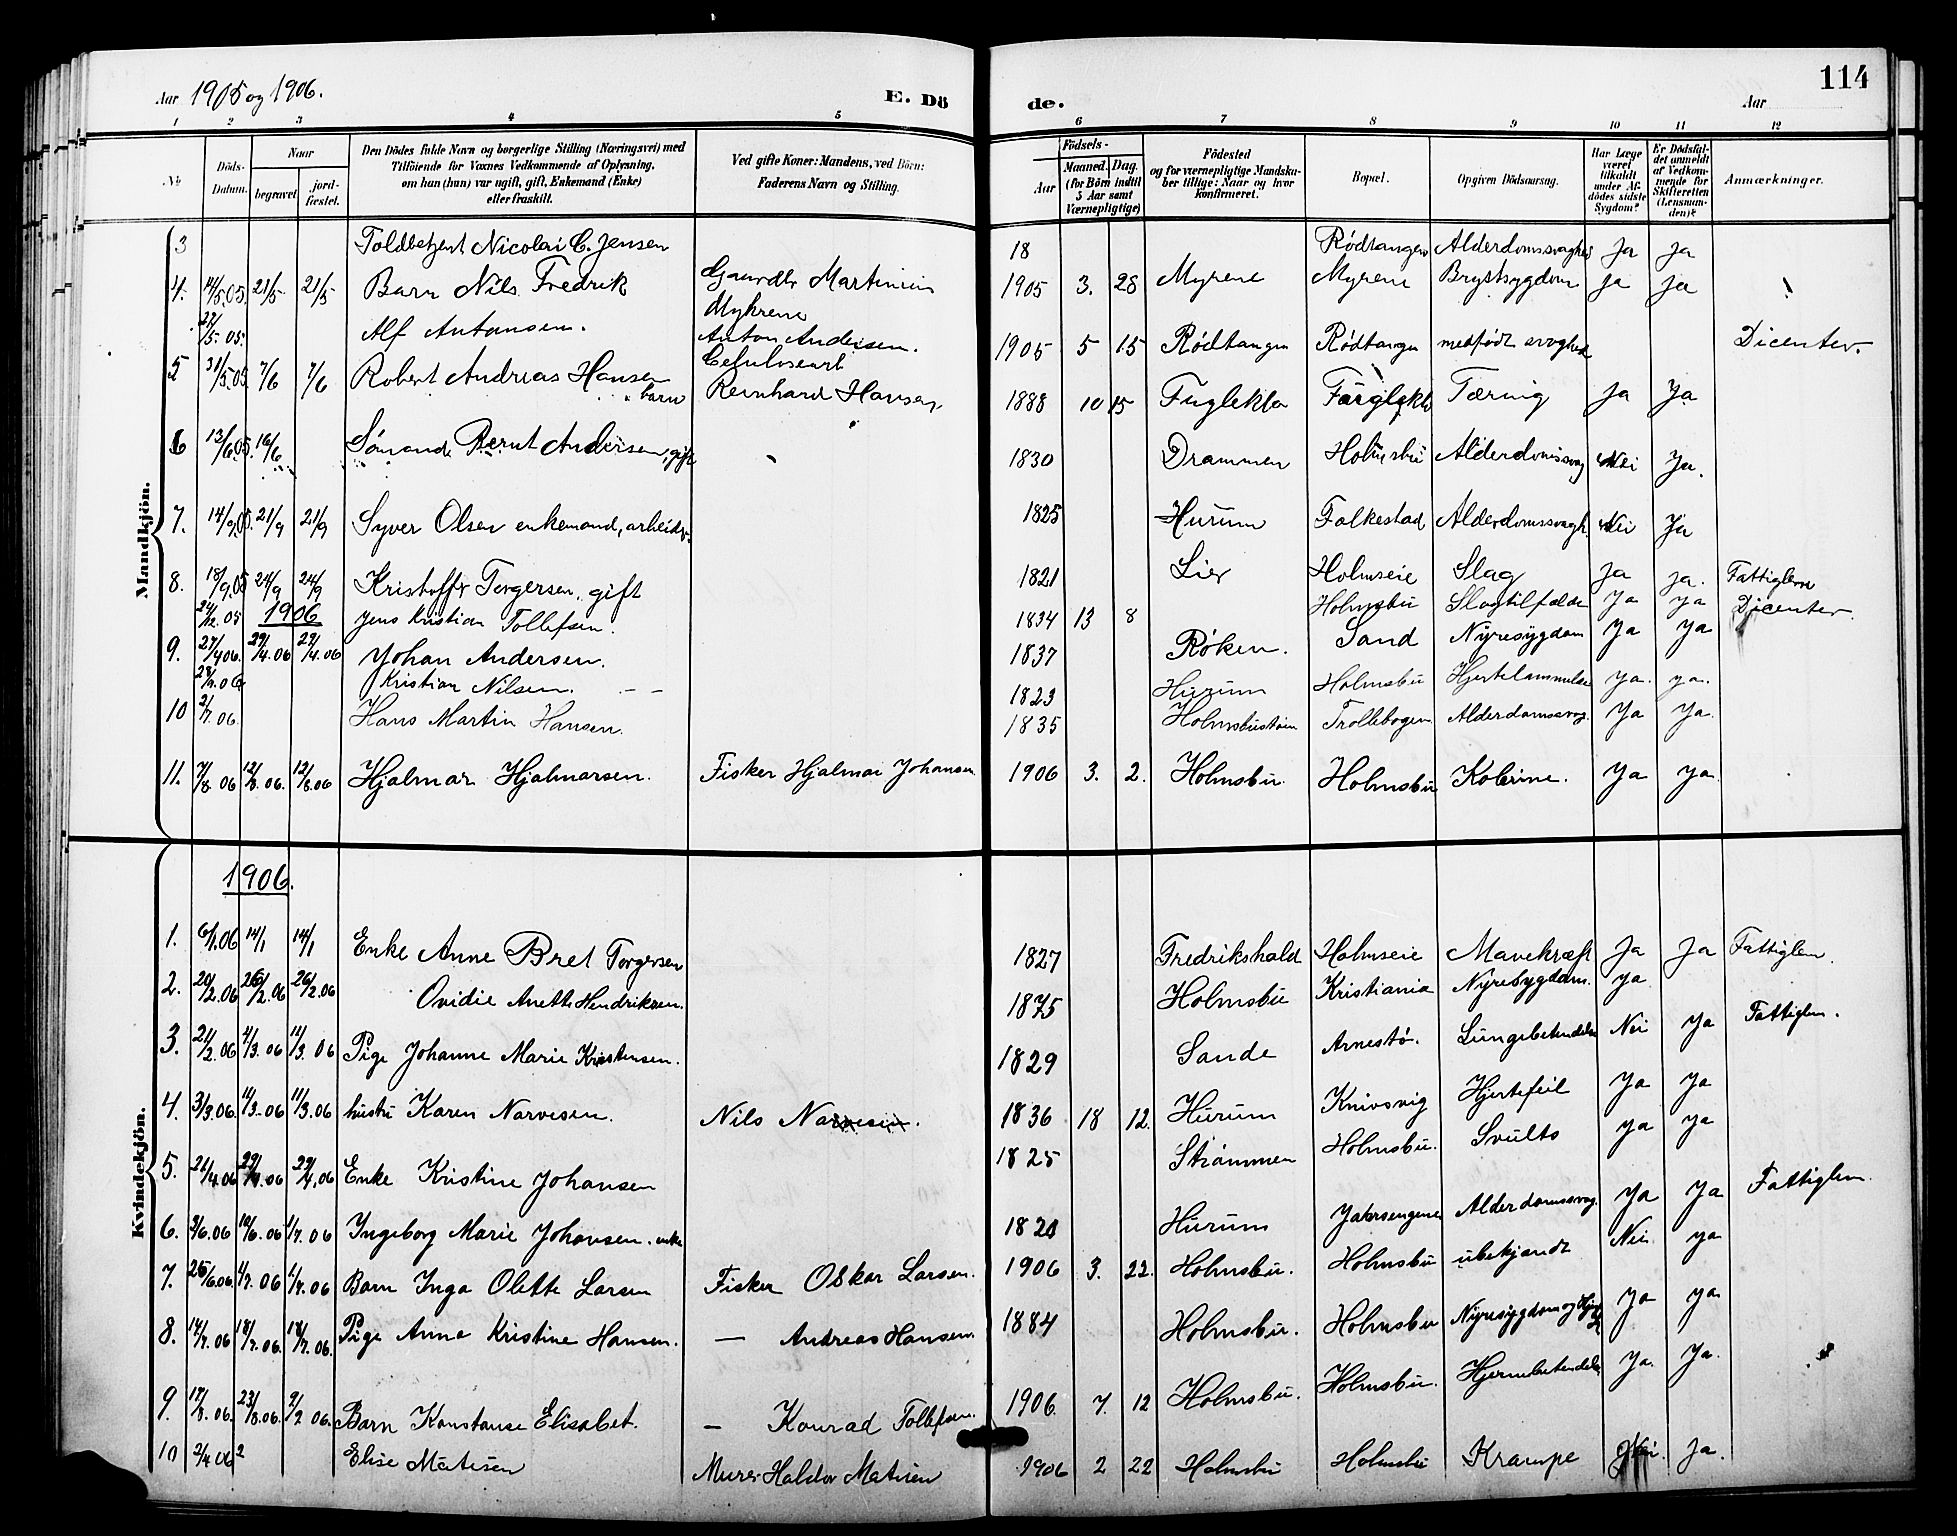 114
Aar 1905 og 1906.
E. Dö
de.
Aar
1 2 3 4 5 6 7 8 9 10 11 12
No
Döds-Datum.
Naar
begravet
jord-fæstet.
Den Dödes fulde Navn og borgerlige Stilling (Næringsvei) med
Tilföiende for Voxnes Vedkommende af Oplysning,
om han (hun) var ugift, gift, Enkemand (Enke)
eller fraskilt.
Ved gifte Koner: Mandens, ved Börn:
Faderens Navn og Stilling.
Födsels-
Aar
Maaned. Dag.
(for Börn indtil
5 Aar samt
Værnepligtige)
Födested
og for værnepligtige Mandska-
ber tillige: Naar og hvor
konfirmeret.
Bopæl.
Opgiven Dödsaarsag.
Har Læge
været
tilkaldt
under Af-
dödes sidste
Sygdom?
Er Dödsfal-
det anmeldt
af Vedkom-
mende for
Skifteretten
(Lensman-
den)?
Anmærkninger.
Mandkjön.
3 Toldbetjent Nicolai C. Jensen 18 Rødtangen Alderdomssvaghed Ja Ja
4. 14/5.05. 21/5 21/5 Barn Nils Fredrik Gaardbr Martinius Myhrene 1905 3. 28 Myrene Myrene Brystsygdom Ja Ja
27/5.05. Alf Antonsen. Anton Andersen. 1905 5 15 Rødtangen Rødtangen medfødt svaghed Dicenter.
5 31/5.05. 7/6 7/6 Robert Andreas Hansen barn Reinhard Hansen 1888 10 15 Fuglekla Tæring Ja Ja
6 13/6.05. 16/6 Sømand Bernt Andersen, gift 1830 Drammen Holmsbu Alderdomssvag Nei Ja.
7. 14/9.05. 21/9 21/9 Syver Olsen enkemand, arbeider. 1825 Hurum Folkestad Alderdomssvagh. Nei Ja
8. 18/9.05 24/9 24/9 Kristoffer Torgersen, gift 1821 Lier Holmseie Slag Ja Ja. Fattiglem
1906
24/12.05 Jens Kristian Tollefsen. 1834 13 8 Holmsbu Slagtilfælde Ja Ja Dicenter.
9. 27/4 06. 29/4.06 29/4.06 Johan Andersen. 1837 Røken. Sand Nyresygdom Ja Ja
Kristian Nilsen. 1823 Hurum Holmsbu Hjertelammelse Ja. Ja.
10 2/7.06. Hans Martin Hansen. 1835 Trollebogen Alderdomssvag. Ja Ja.
11. 7/8 06 12/8.06. 12/8.06 Hjalmar Hjalmarsen. Fisker Hjalmar Johansen 1906 3. 2. Holmsbu. Holmsbu Kolerine. Ja Ja.
Kvindekjön.
1906.
1. 6/1.06 14/1 14/1 Enke Anne Bret Torgersen 1827 Fredrikshald Holmseie Mavekræft Ja Ja Fattiglem.
2. 20/2.06 26/2.06 26/2.06 Ovidie Anette Hendriksen. 1875 Holmsbu Kristiania Nyresygdom. Ja
3. 21/2.06 4/3.06 11/3.06 Pige Johanne Marie Kristensen. 1829 Sande Arnestø. Lungebetendelse Nei Ja Fattiglem.
4. 3/3.06. 11/3.06 11/3.06 hustru Karen Narvesen. Nils Narvesen. 1836 18 12. Hurum Knivsvig Hjertefeil Ja Ja
5. 21/4.06 29/4.06 29/4.06 Enke Kristine Johansen 1825 Strømmen Holmsbu. Svulto Ja Ja
6. 3/6.06 10/6.06 1/7.06 Ingeborg Marie Johansen. enke 1820 Hurum Alderdomssvag. Ja Ja Fattiglem.
7. 25/6.06. 1/7.06 1/7.06 Barn Inga Olette Larsen Fisker Oskar Larsen. 1906 3. 22. Holmsbu. Holmsbu ubekjendt Nei. Ja
8. 14/7.06 18/7.06. 18/7.06. Pige Anna Kristine Hansen. — Andreas Hansen. 1884 Holmsbu. Holmsbu Nyresygdom og Ja Ja
9. 17/8.06. 23/8.06. Barn Konstanse Elisabet. — Konrad Tollefsen. 1906. 7. 12 Holmsbu. Holmsbu. Hjernebetendelse Ja. Ja.
10 2/4 06 Elise Matisen Murer Haldor Matisen 1906 2 22 Holmsbu Holmsbu Krampe Nei. Ja.